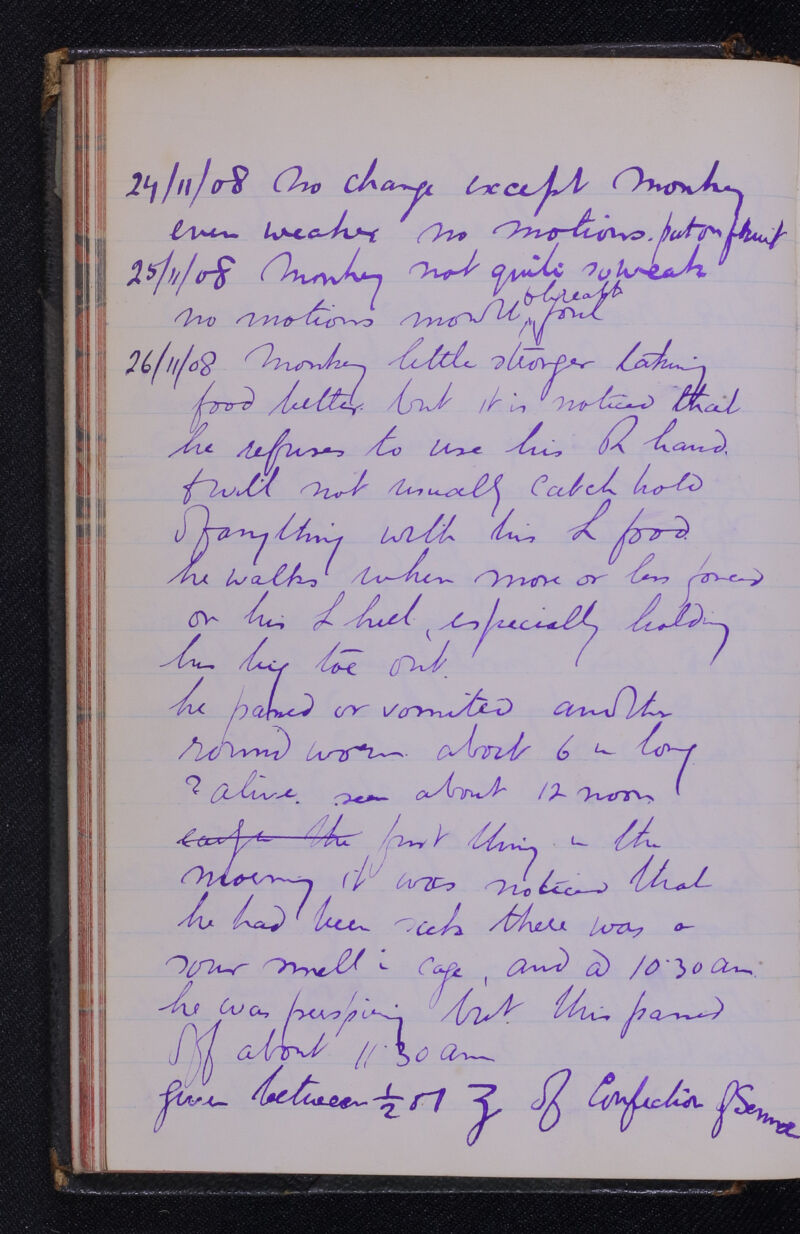 24/11/08 No change except Monkey
even weaker no motions. put on fruit
25/11/08 Monkey not quite so weak
no motions mouth & breath foul
26/11/08 Monkey little stronger taking
food better. but it is noticed that
he refuses to use his R hand.
& will not usually catch hold
of anything with his L food
he walks when more or less forced
on his L heel, especially holding
his big toe out.
he passed or vomited another
round worm about 6 in long
? alive. seen about 12 noon
the first thing in the
morning it was noticed that
he had been sick there was a
sour smell in cage, and at 10.30 am
he was perspiring but this passed
off about 11.30 am
given between ½ or 1 ʒ of Confection of Senna